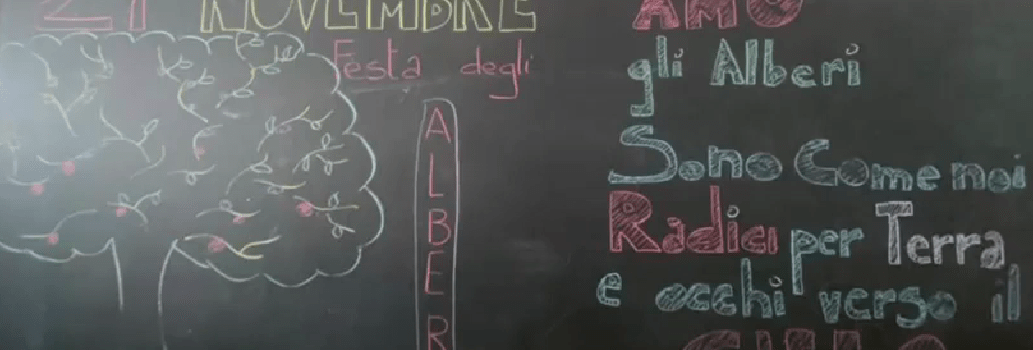 21 NOVEMBRE
Festa degli
ALBER
AMO
gli Alberi
Sono Come noi
Radici per Terra
e occhi verso il
CIELO